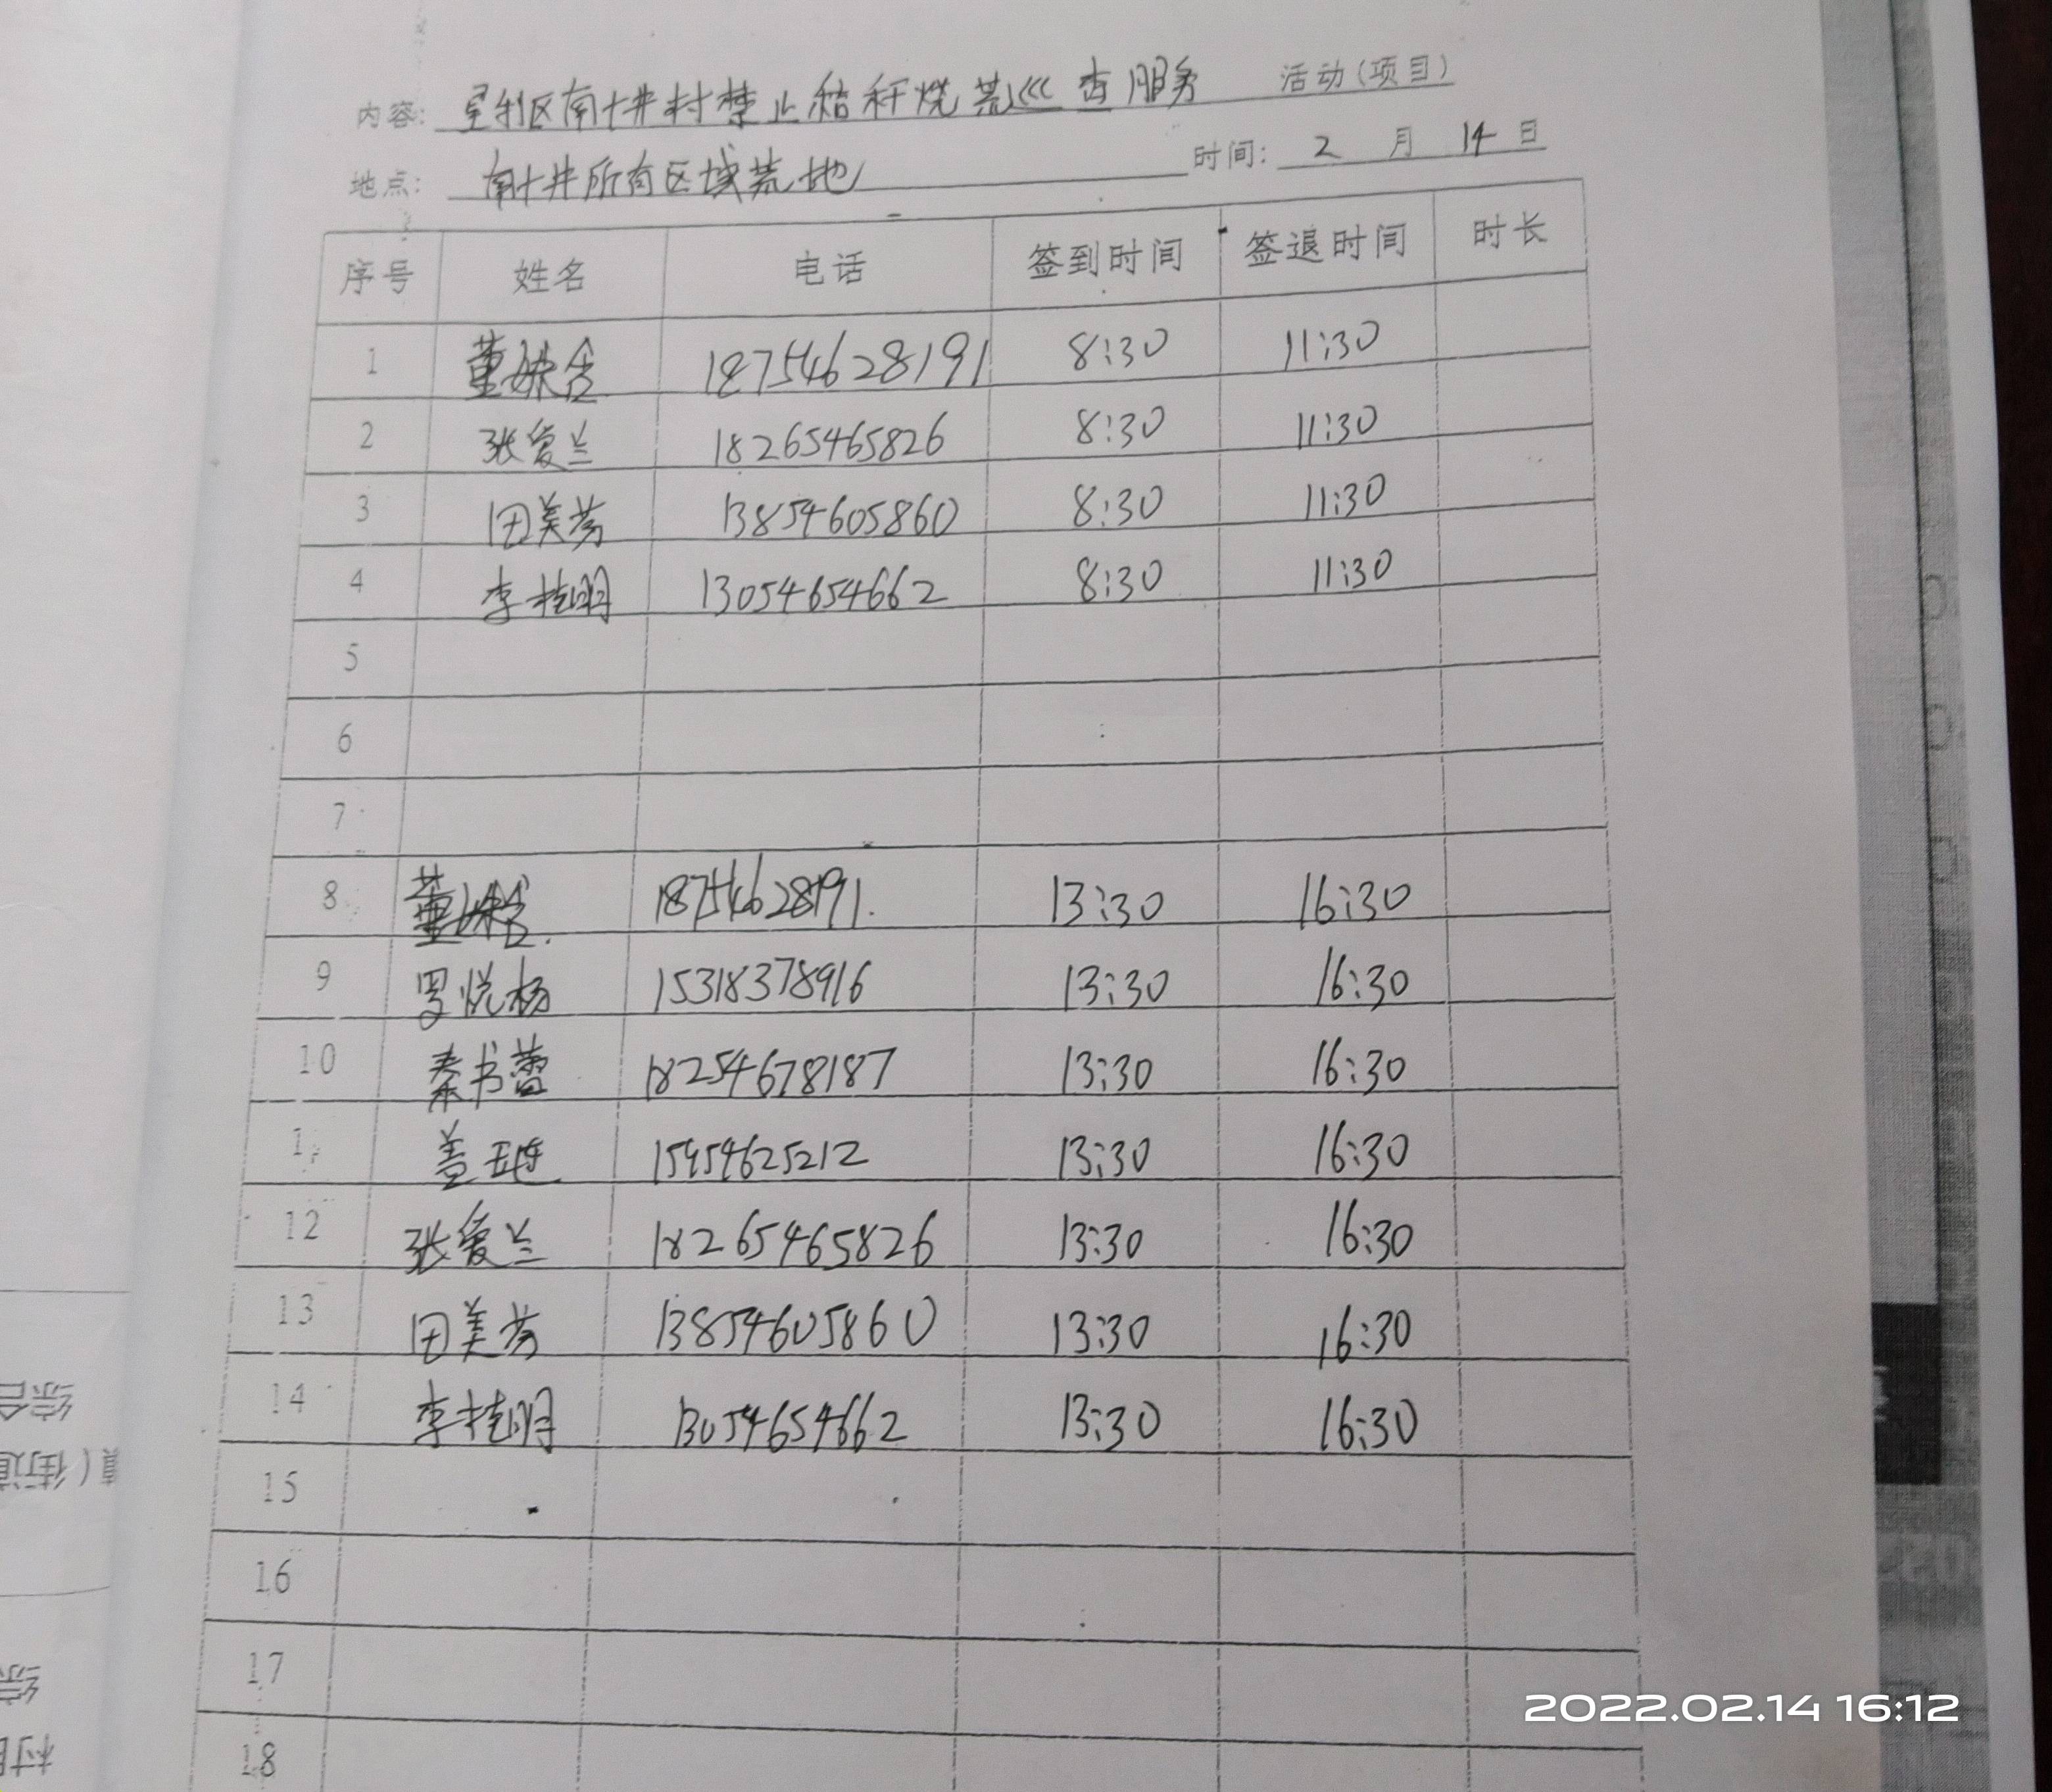 内容: 垦利区南十井村禁止秸秆烧荒巡查服务 活动(项目)
地点: 南十井所有区域荒地 时间: 2 月 14 日
序号 姓名 电话 签到时间 签退时间 时长
1 董姝含 18754628191 8:30 11:30
2 张爱兰 18265465826 8:30 11:30
3 田美芳 13854605860 8:30 11:30
4 李桂明 13054654662 8:30 11:30
5
6
7
8 董姝含 18754628191. 13:30 16:30
9 罗悦杨 15318378916 13:30 16:30
10 秦书蕾 18254678187 13:30 16:30
盖琏 15954625212 13:30 16:30
12 张爱兰 18265465826 13:30 16:30
13 田美芳 13854605860 13:30 16:30
14 李桂明 13054654662 13:30 16:30
15
16
17
18
综合
(街道)
综
村
2022.02.14 16:12